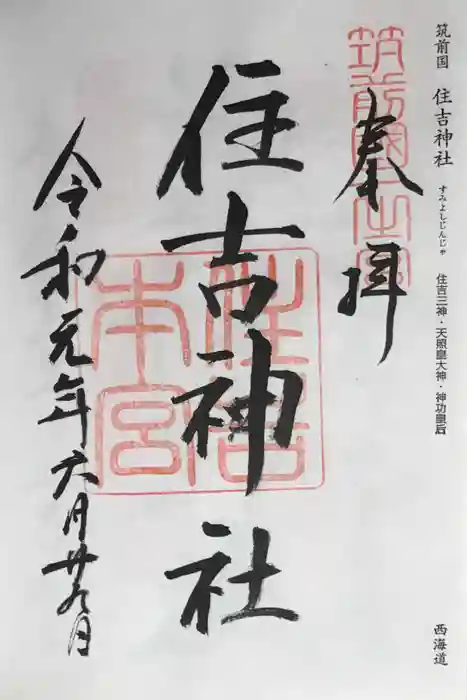 筑前国 住吉神社 すみよしじんじゃ 住吉三神・天照皇大神・神功皇后 西海道
奉拝
筑前國一之宮
住吉神社
住吉
本宮
令和元年六月廿九日